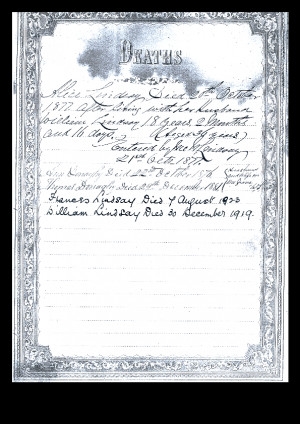 DEATHS
Alice Lindsay Died 20th October
1877 after living with her husband
William Lindsay 18 years 2 months
and 16 days. (Aged 36 years)
Entered by Wm Lindsay
21st Oct. 1877.
Died 22nd October 1876
Died 24th December 1881
Frances Lindsay Died 7 August 1923
William Lindsay Died 30 December 1919.